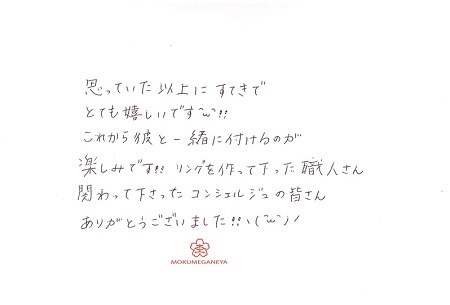 思っていた以上に すてきで
とても嬉しいです^w^!!
これから彼と一緒に付けるのが
楽しみです!! リングを作って下った職人さん
関わって下さったコンシェルジュの皆さん
ありがとうございました!!ヽ(^w^)ノ
MOKUMEGANEYA